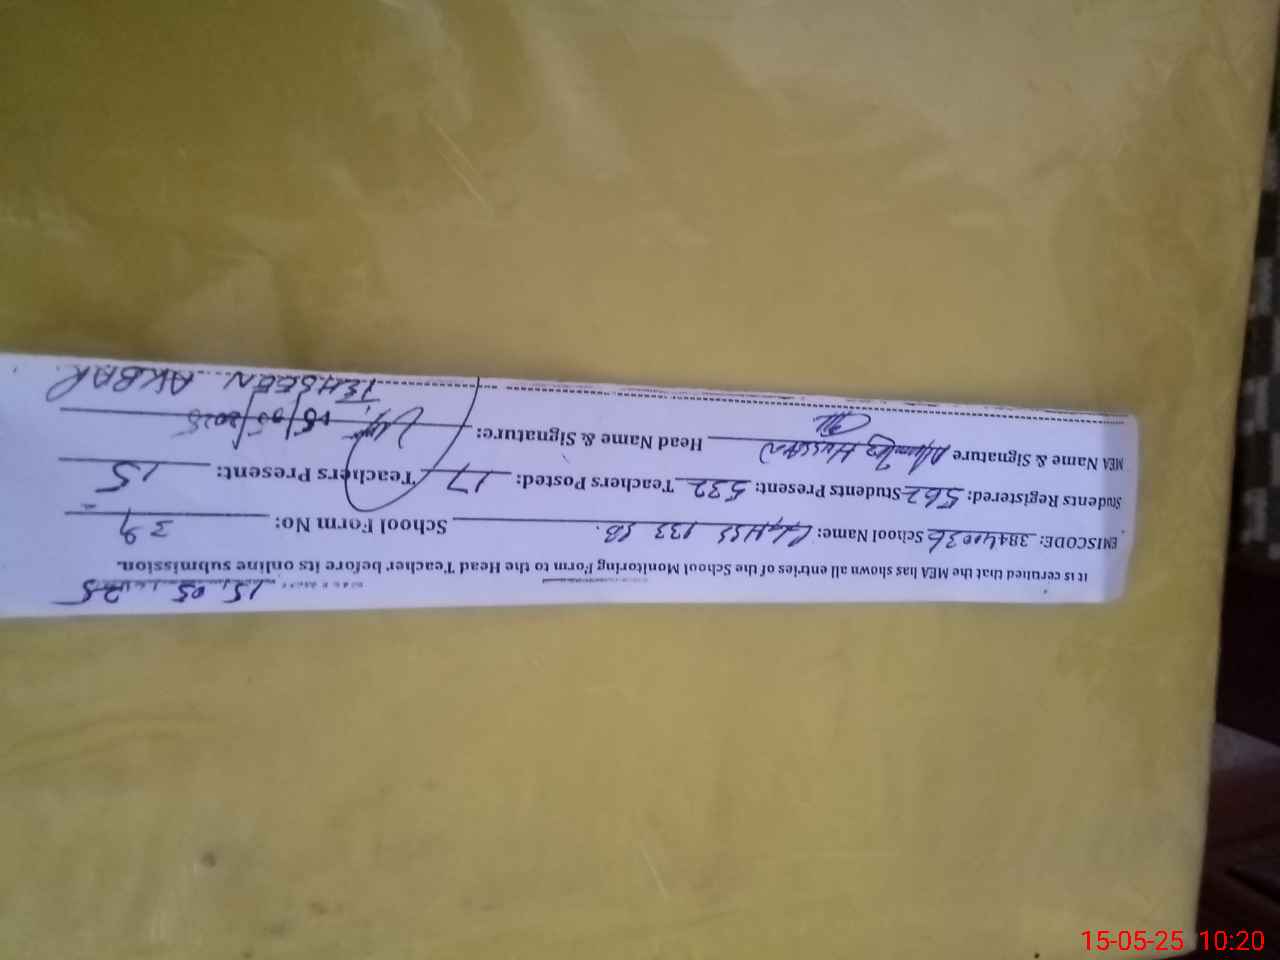 15.05.2025
It is certified that the MEA has shown all entries of the School Monitoring Form to the Head Teacher before its online submission.
EMISCODE: 38440036 School Name: GGHSS 133 SB. School Form No: 39
Students Registered: 562 Students Present: 532 Teachers Posted: 17 Teachers Present: 15
MEA Name & Signature Hussain Head Name & Signature: 15/05/2025
TEHSEEN AKBAR
15-05-25 10:20